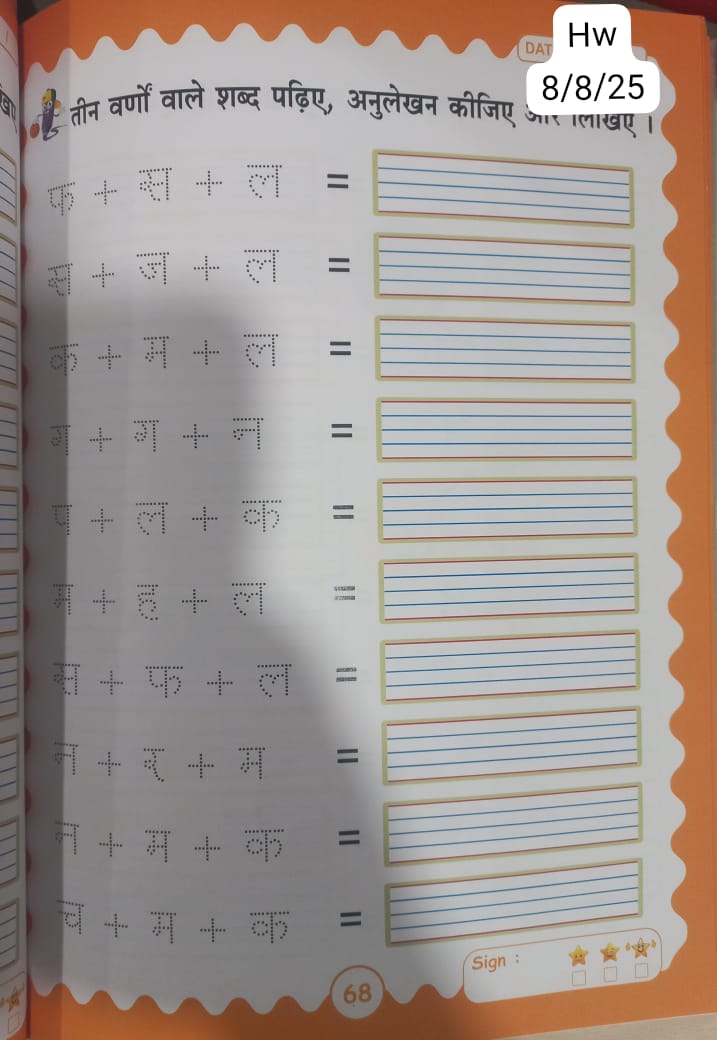 DAT
Hw
8/8/25
तीन वर्णों वाले शब्द पढ़िए, अनुलेखन कीजिए और लिखिए ।
फ + स + ल =
स + ज + ल =
क + म + ल =
ग + ग + न =
प + ल + क =
म + ह + ल =
स + फ + ल =
न + र + म =
न + म + क =
च + म + क =
Sign :
68